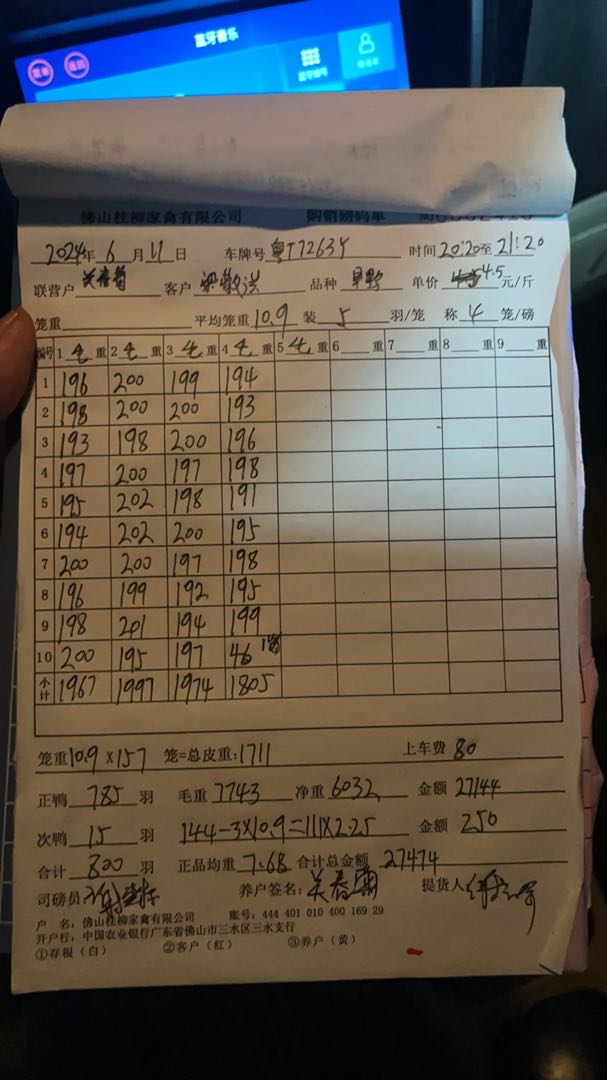 蓝牙音乐
菜单 返回 蓝牙拨号
佛山桂柳家禽有限公司 购销磅码单
2024年 6 月 11 日 车牌号 粤T7263Y 时间 20:20至 21:20
联营户 关春菊 客户 品种 单价 4.5 元/斤
笼重 平均笼重 10.9 装 5 羽/笼 称 4 笼/磅
编号 1 毛 重 2 毛 重 3 毛 重 4 毛 重 5 毛 重 6 重 7 重 8 重 9 重
1 196 200 199 194
2 198 200 200 193
3 193 198 200 196
4 197 200 197 198
5 195 202 198 191
6 194 202 200 195
7 200 200 197 198
8 196 199 192 195
9 198 201 194 199
10 200 195 197 46 1笼
小计 1967 1997 1974 1805
笼重 10.9 X 157 笼=总皮重: 1711 上车费 80
正鸭 785 羽 毛重 7743 净重 6032 金额 27144
次鸭 15 羽 144-3X10.9=111X2.25 金额 250
合计 800 羽 正品均重 7.68 合计总金额 27474
司磅员 养户签名: 关春菊 提货人
户 名: 佛山桂柳家禽有限公司 账号: 444 401 010 400 169 29
开户行: 中国农业银行广东省佛山市三水区三水支行
①存根（白） ②客户（红） ③养户（黄）